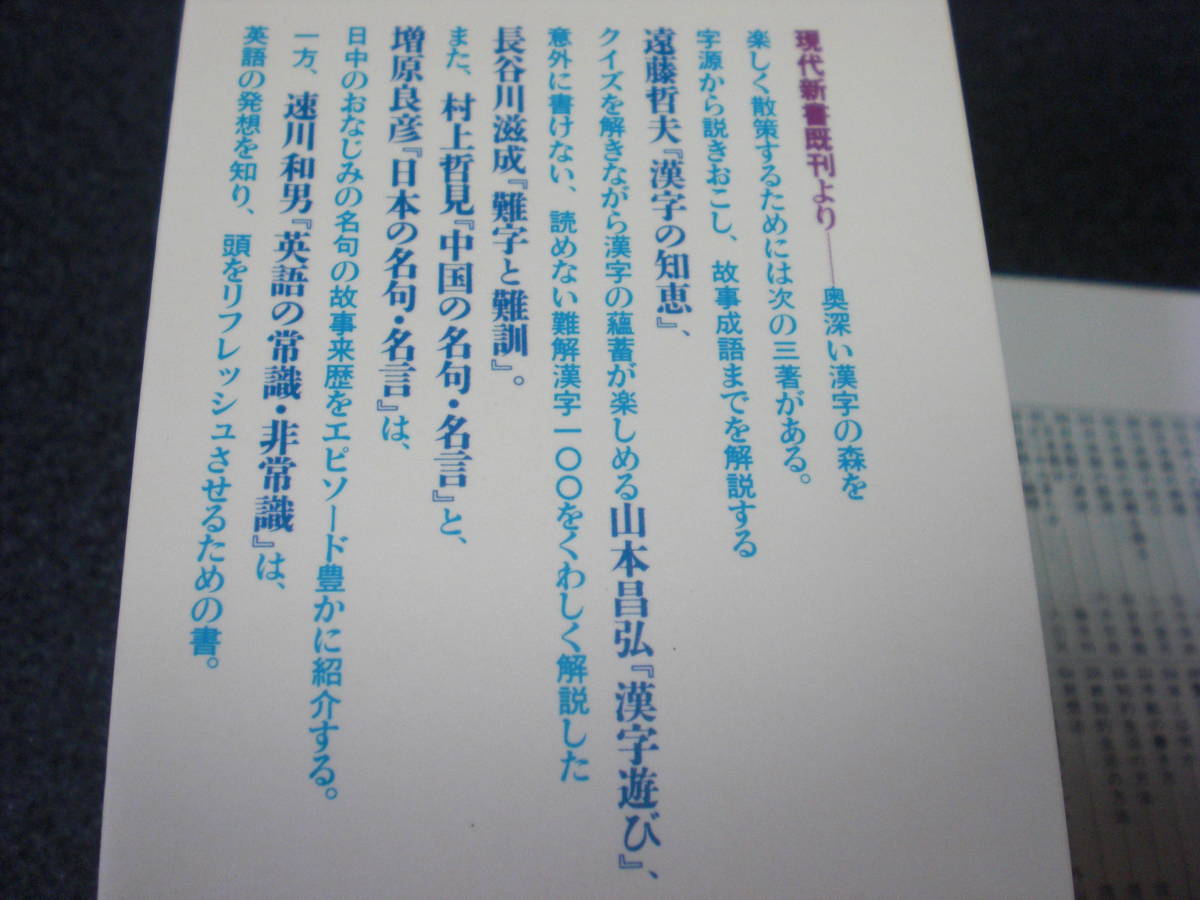 現代新書既刊より——奥深い漢字の森を
楽しく散策するためには次の三著がある。
字源から説きおこし、故事成語までを解説する
遠藤哲夫『漢字の知恵』、
クイズを解きながら漢字の蘊蓄が楽しめる山本昌弘『漢字遊び』、
意外に書けない、読めない難解漢字一〇〇をくわしく解説した
長谷川滋成『難字と難訓』。
また、村上哲見『中国の名句・名言』と、
増原良彦『日本の名句・名言』は、
日中のおなじみの名句の故事来歴をエピソード豊かに紹介する。
一方、速川和男『英語の常識・非常識』は、
英語の発想を知り、頭をリフレッシュさせるための書。